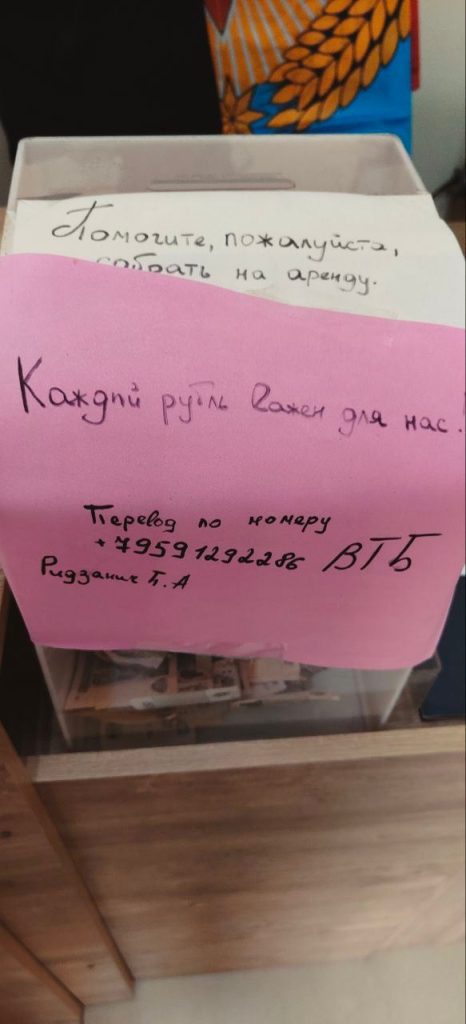 Помогите, пожалуйста,
собрать на аренду.
Каждпй рубль важен для нас!
Перевод по номеру
+79591292286 ВТБ
Ридзанич Б.А